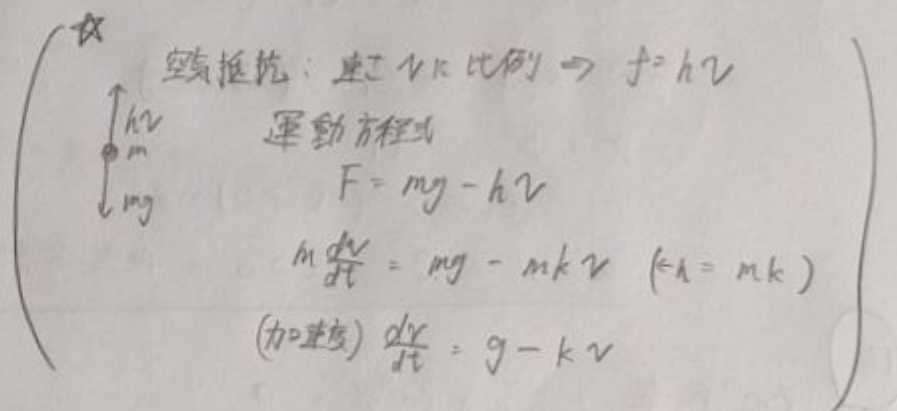 ☆
空気抵抗：速さvに比例 ⇒ f=hv
hv
m
mg
運動方程式
F = mg - hv
m dv/dt = mg - mkv (←h = mk)
(加速度) dv/dt = g - kv